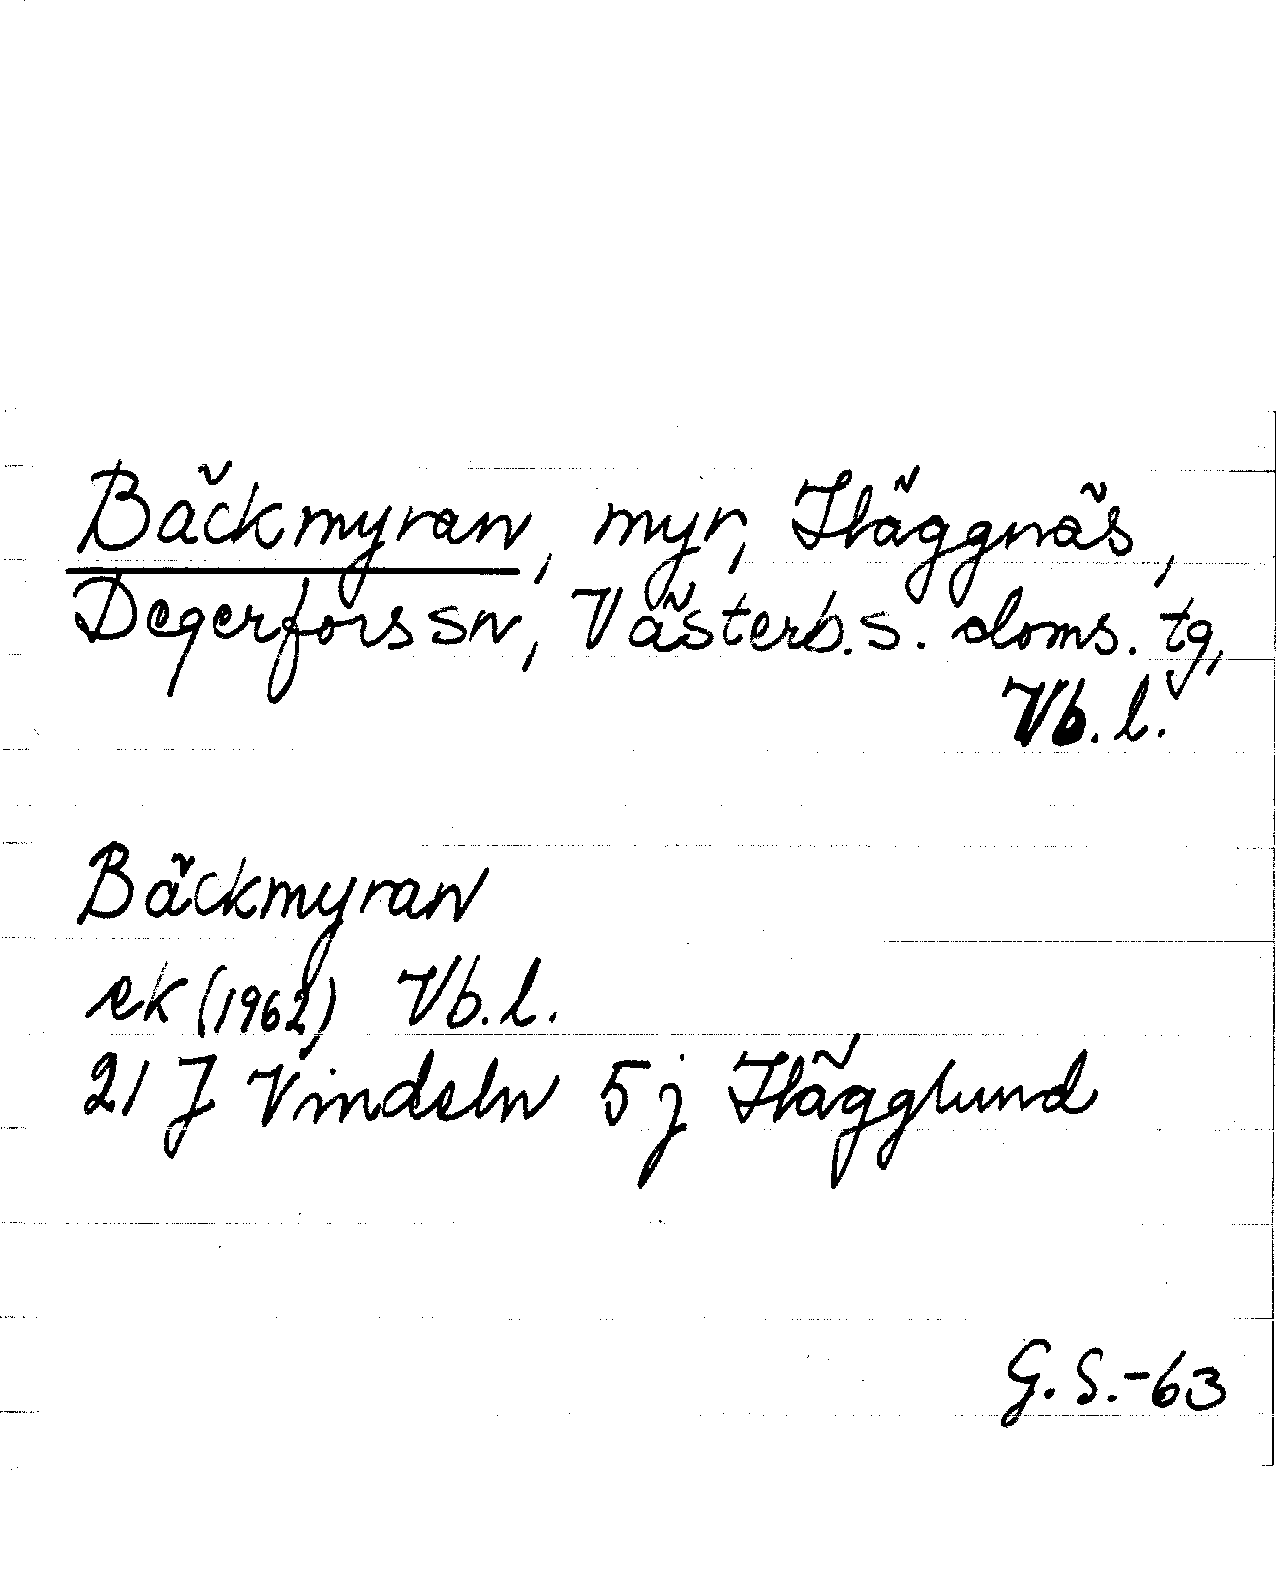 Bäckmyran, myr, Häggnäs,
Degerfors sn, Västerb. s. doms. tg,
Vb. l.
Bäckmyran
ek (1962) Vb. l.
21 J Vindeln 5 j Hägglund
G. S. -63